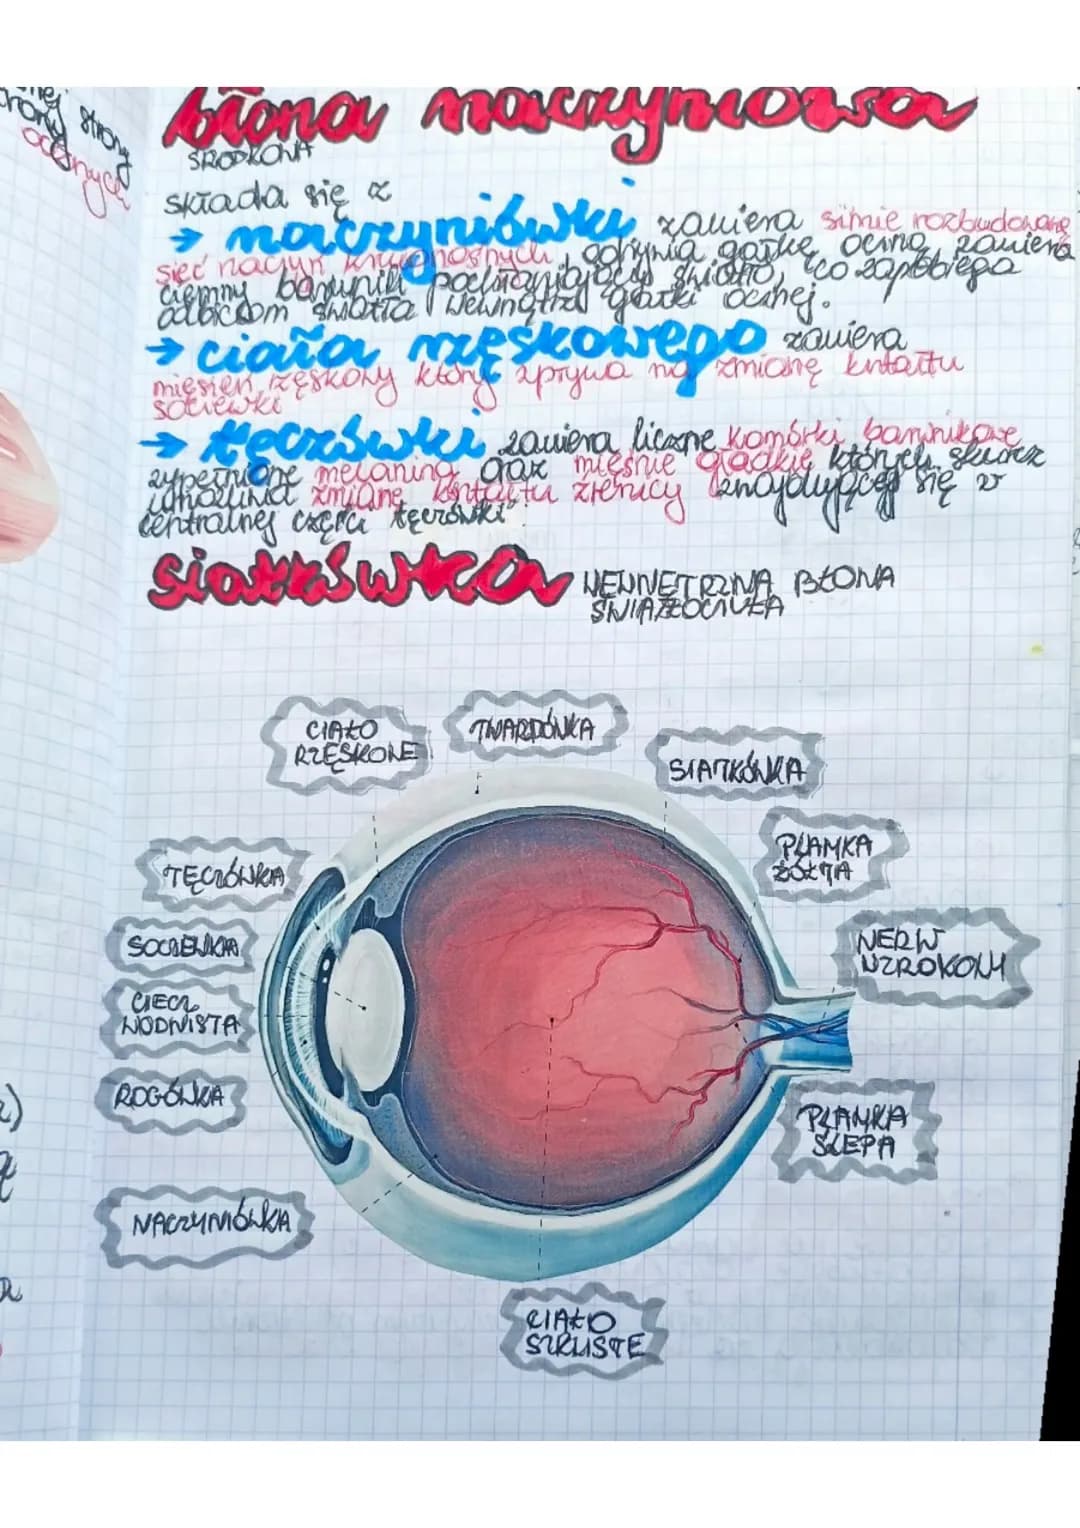 strony
ocznych
błona naczyniowa
ŚRODKOWA
składa się z
→ naczyniówki zawiera silnie rozbudowaną
sieć naczyń krwionośnych, gałkę oczną, zawiera
ciemny barwnik pochłaniający światło, co zapobiega
odbiciom światła wewnątrz gałki ocznej.
→ ciała rzęskowego zawiera
mięsień rzęskowy który wpływa na zmianę kształtu
soczewki
→ tęczówki zawiera liczne komórki barwnikowe
wypełnione melaniną oraz mięśnie gładkie których skurcz
umożliwia zmianę kształtu źrenicy znajdującej się w
centralnej części tęczówki.
siatkówka WEWNĘTRZNA BŁONA
ŚWIATŁOCZUŁA
CIAŁO
RZĘSKOWE
TWARDÓWKA
SIATKÓWKA
PLAMKA
ŻÓŁTA
TĘCZÓWKA
NERW
WZROKOWY
SOCZEWKA
CIECZ
WODNISTA
ROGÓWKA
PLAMKA
ŚLEPA
NACZYNIÓWKA
CIAŁO
SZKLISTE